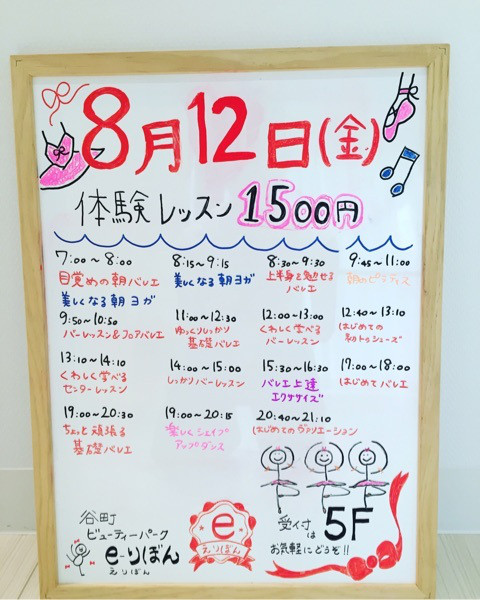 8月12日(金)
体験レッスン 1500円
7:00〜8:00
目覚めの朝バレエ
美しくなる朝ヨガ
8:15〜9:15
美しくなる朝ヨガ
8:30〜9:30
上半身を魅せる
バレエ
9:45〜11:00
朝のピラティス
9:50〜10:50
バーレッスン&フロアバレエ
11:00〜12:30
ゆっくりしっかり
基礎バレエ
12:00〜13:00
くわしく学べる
バーレッスン
12:40〜13:10
はじめての
トゥシューズ
13:10〜14:10
くわしく学べる
センターレッスン
14:00〜15:00
しっかりバーレッスン
15:30〜16:30
バレエ上達
エクササイズ
17:00〜18:00
はじめてバレエ
19:00〜20:30
ちょっと頑張る
基礎バレエ
19:00〜20:15
楽しくシェイプ
アップダンス
20:40〜21:10
はじめてのヴァリエーション
谷町
ビューティーパーク
e-りぼん
えりぼん
e
えりぼん
受付は5F
お気軽にどうぞ!!